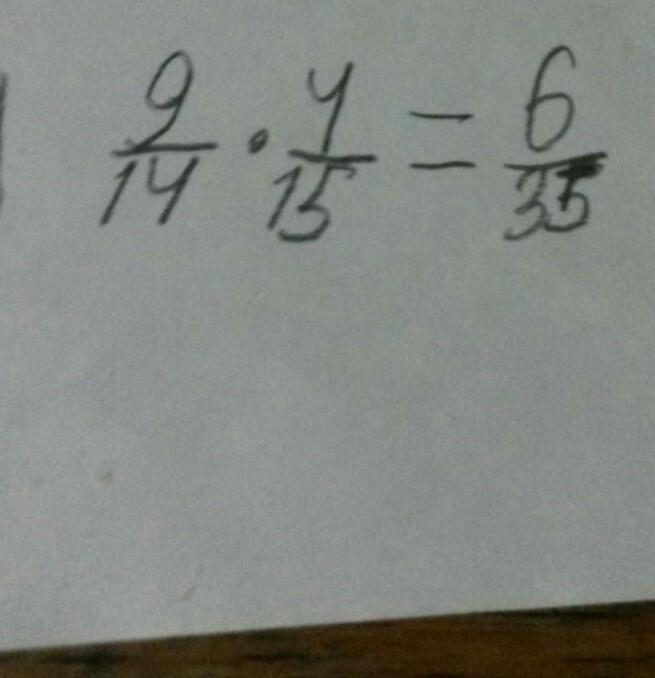 9/14 · 4/15 = 6/35